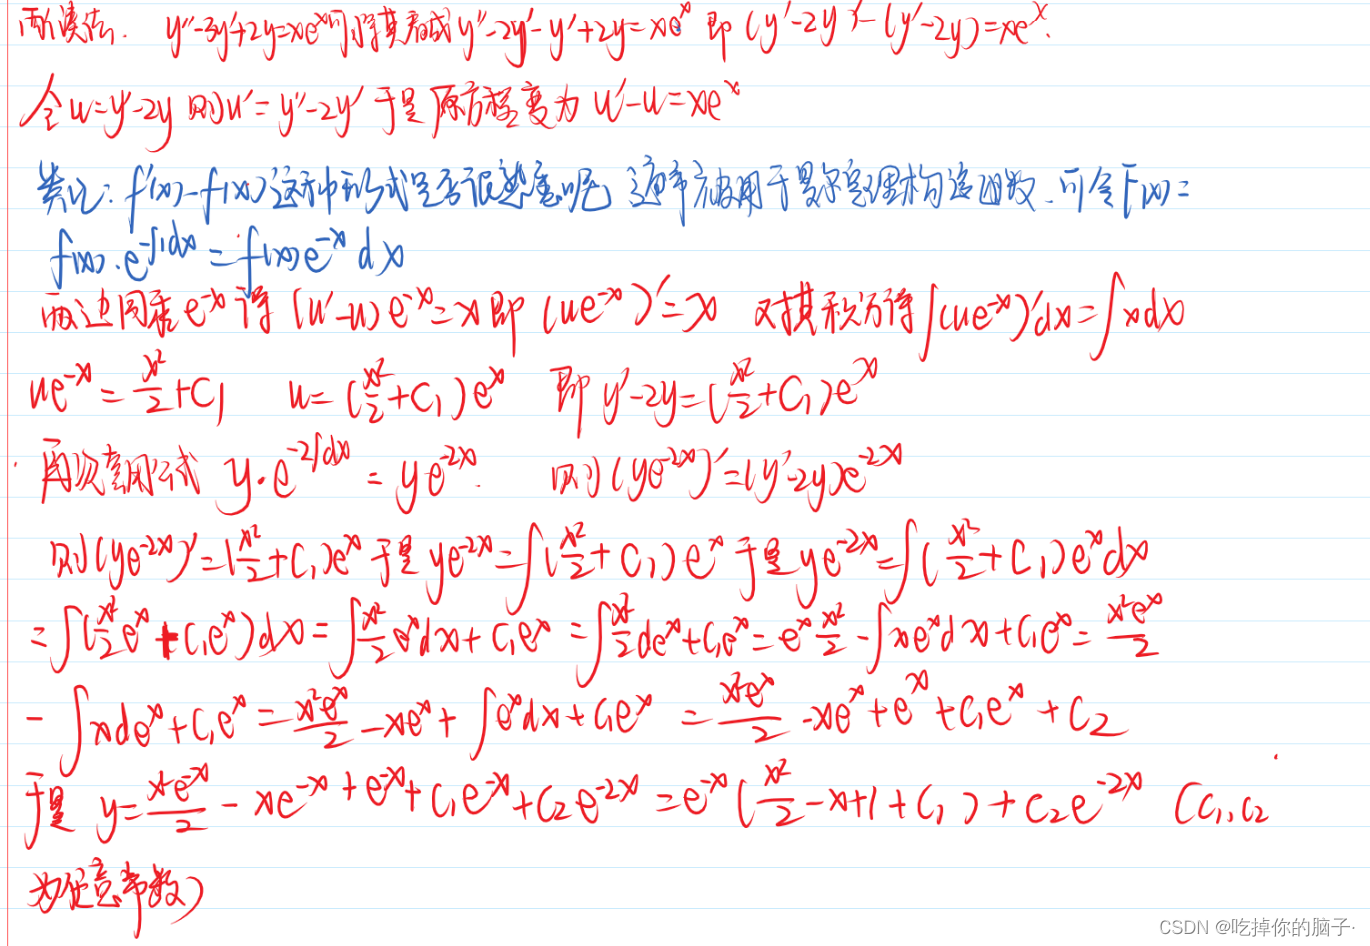 y''-3y'+2y=xe^x可将其看成y''-2y'-y'+2y=xe^x 即 (y'-2y)'-(y'-2y)=xe^x.
令u=y'-2y 则u'=y''-2y' 于是原方程变为 u'-u=xe^x
类比: f'(x)-f(x)这种形式是否很熟悉呢, 通常被用于罗尔定理构造函数. 可令F(x)=
f(x)·e^{-∫1dx}=f(x)e^{-x}dx
两边同乘e^{-x}得 (u'-u)e^{-x}=x即 (ue^{-x})'=x 对其积分得∫(ue^{-x})'dx=∫xdx
ue^{-x}=x²/2+C₁ u=(x²/2+C₁)e^x 即 y'-2y=(x²/2+C₁)e^x
再次套用公式 y·e^{-2∫dx}=ye^{-2x}. 则(ye^{-2x})'=(y'-2y)e^{-2x}
则(ye^{-2x})'=(x²/2+C₁)e^x于是ye^{-2x}=∫(x²/2+C₁)e^x于是ye^{-2x}=∫(x²/2+C₁)e^xdx
=∫(x²/2e^x+C₁e^x)dx=∫x²/2e^xdx+C₁e^x=∫x²/2de^x+C₁e^x=e^x x²/2-∫xe^xdx+C₁e^x=x²e^x/2
-∫xde^x+C₁e^x=x²e^x/2-xe^x+∫e^xdx+C₁e^x=x²e^x/2-xe^x+e^x+C₁e^x+C₂
于是 y=x²e^{-x}/2-xe^{-x}+e^{-x}+C₁e^{-x}+C₂e^{-2x}=e^{-x}(x²/2-x+1+C₁)+C₂e^{-2x} (C₁,C₂
为任意常数)
CSDN @吃掉你的脑子·